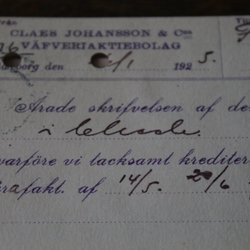 från
CLAES JOHANSSON & Co:s
VÄFVERIAKTIEBOLAG
den /1 1925.
Ärade skrifvelsen af de
i
varföre vi tacksamt krediter
fakt. af 14/5. 20/6